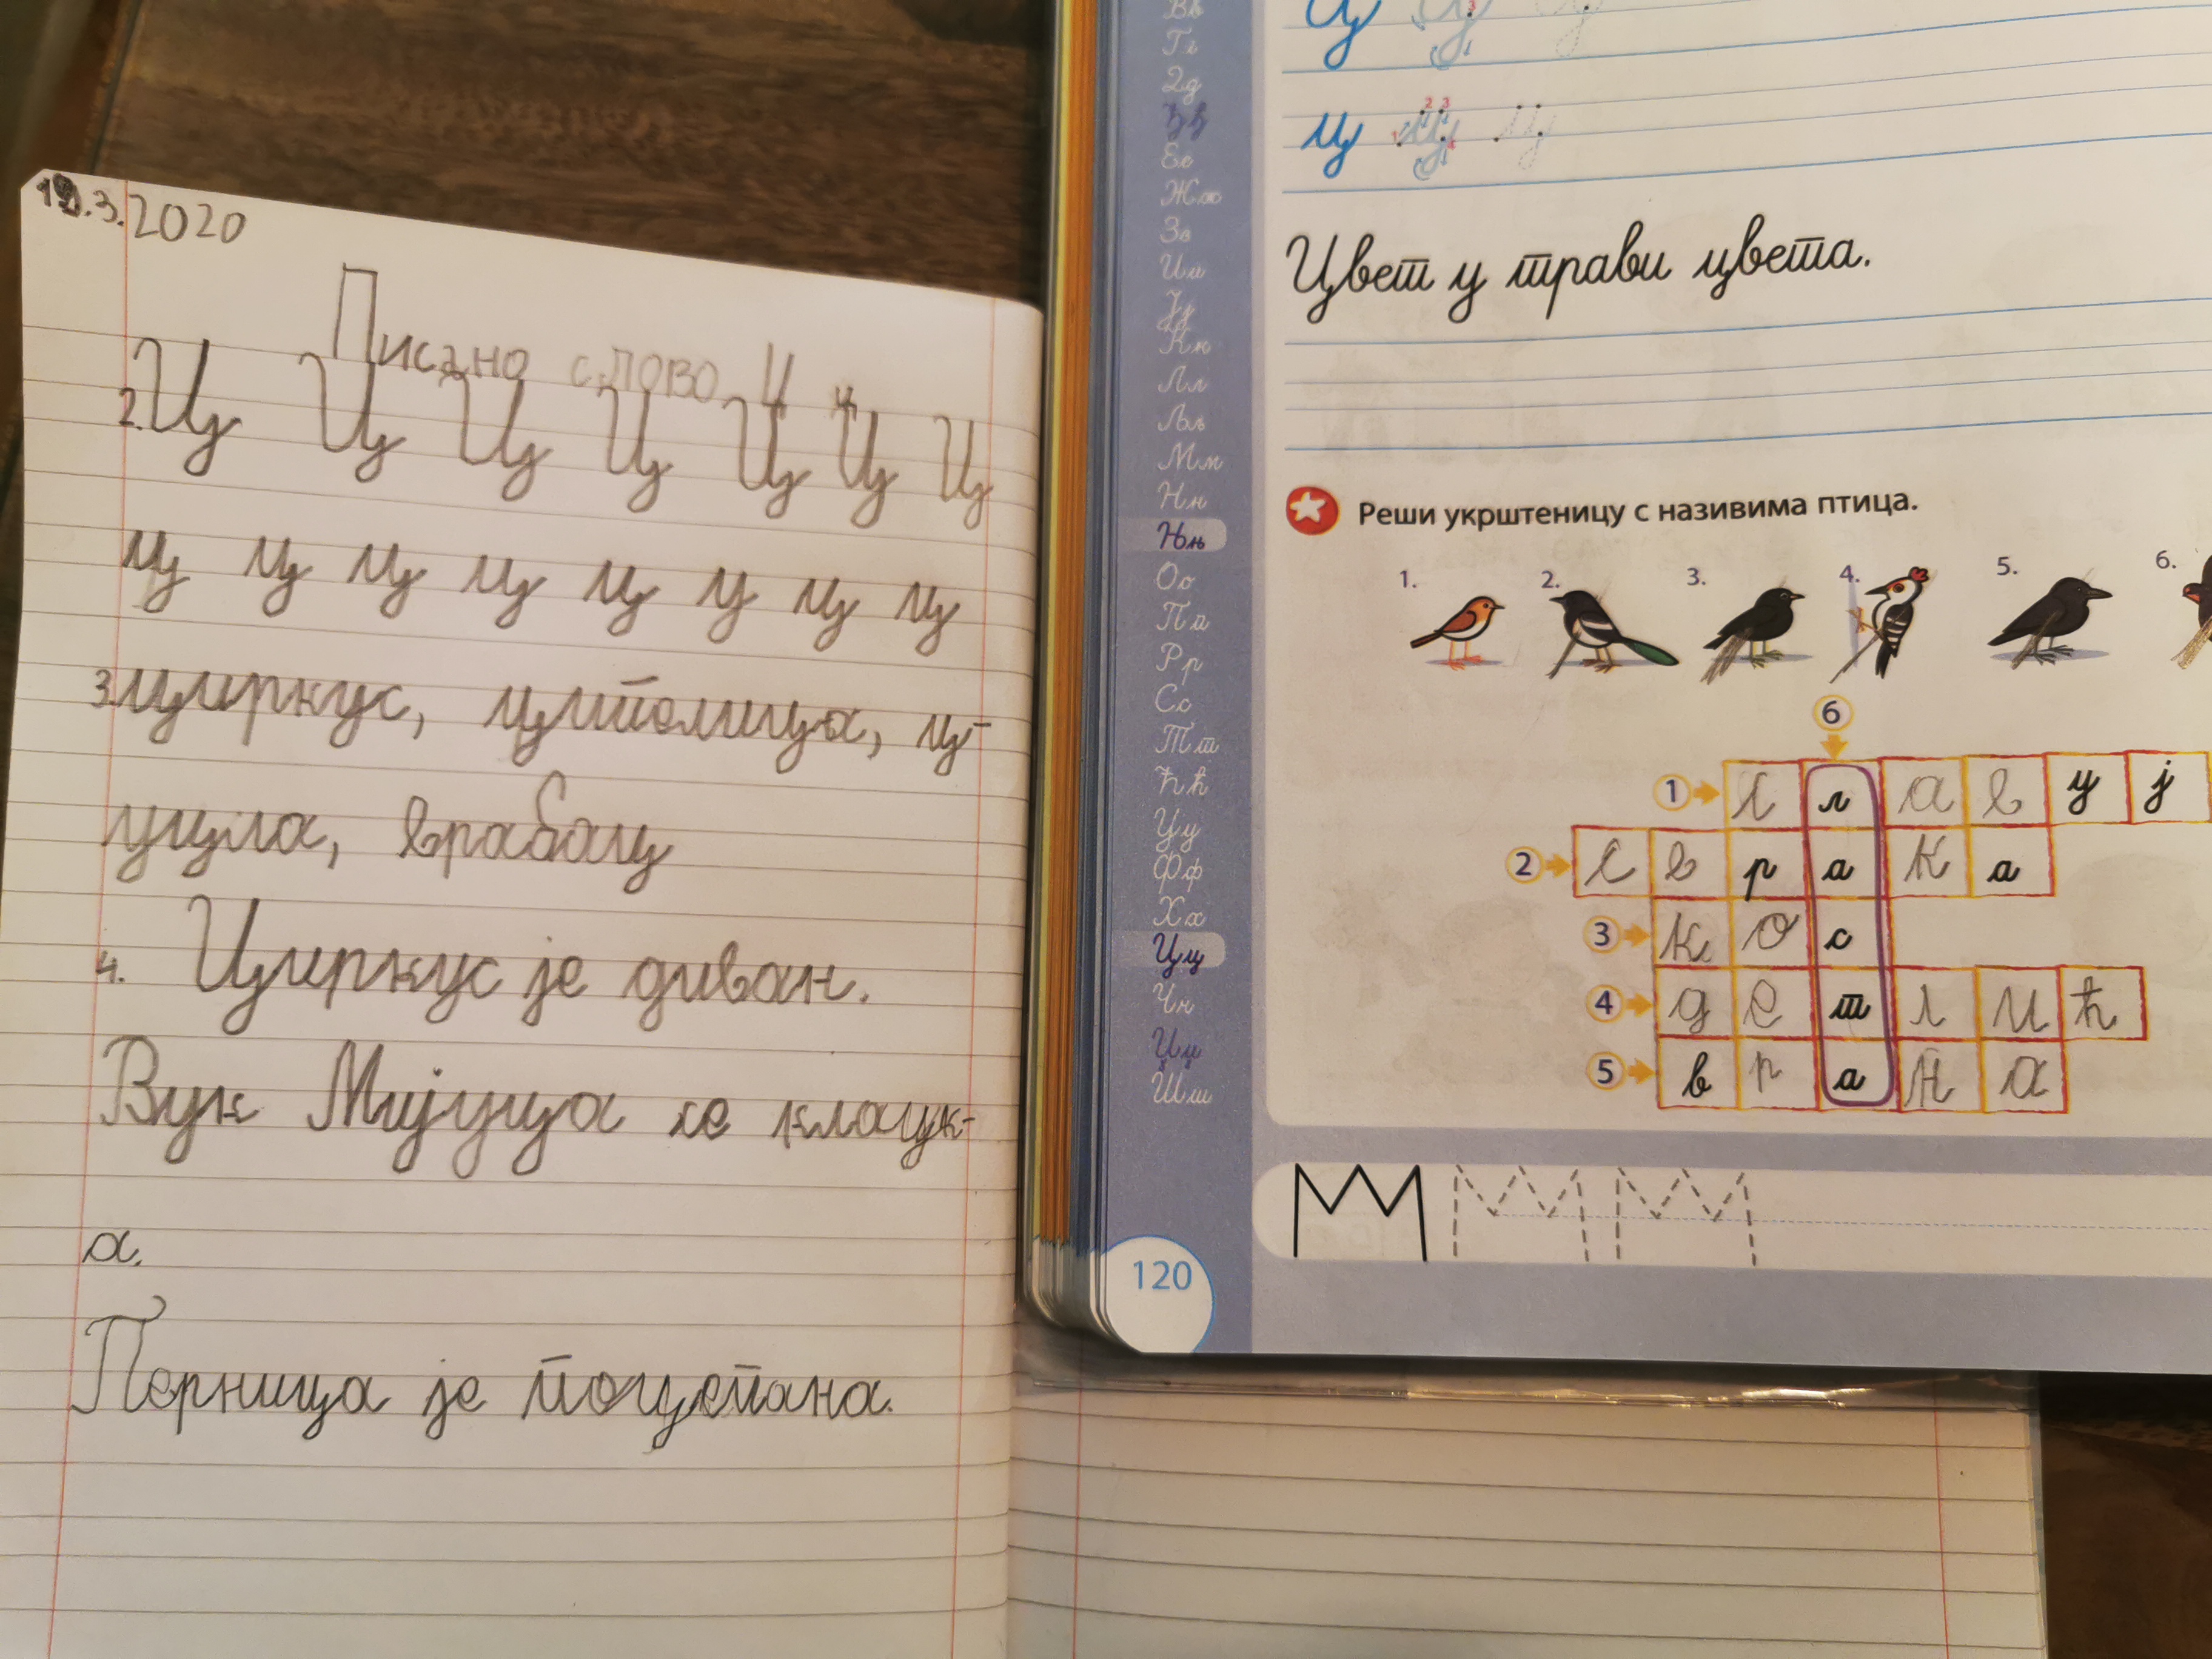 19.3.2020
Писано слово Ц ц
2. Ц Ц Ц Ц Ц Ц Ц
ц ц ц ц ц ц ц ц
3. циркус, цитолица, ц-
уцла, врабац
4. Циркус је диван.
Вук Мијуца се клацк-
а.
Перница је поцепана.
Вв
Гг
Дд
Ђђ
Ее
Жж
Зз
Ии
Јј
Кк
Лл
Љљ
Мм
Нн
Њњ
Оо
Пп
Рр
Сс
Тт
Ћћ
Уу
Фф
Хх
Цц
Чч
Џџ
Шш
120
ц
Цвет у трави цвета.
Реши укрштеницу с називима птица.
1. 2. 3. 4. 5. 6.
6
1 с л а в у ј
2 с в р а к а
3 к о с
4 д е т л и ћ
5 в р а н а